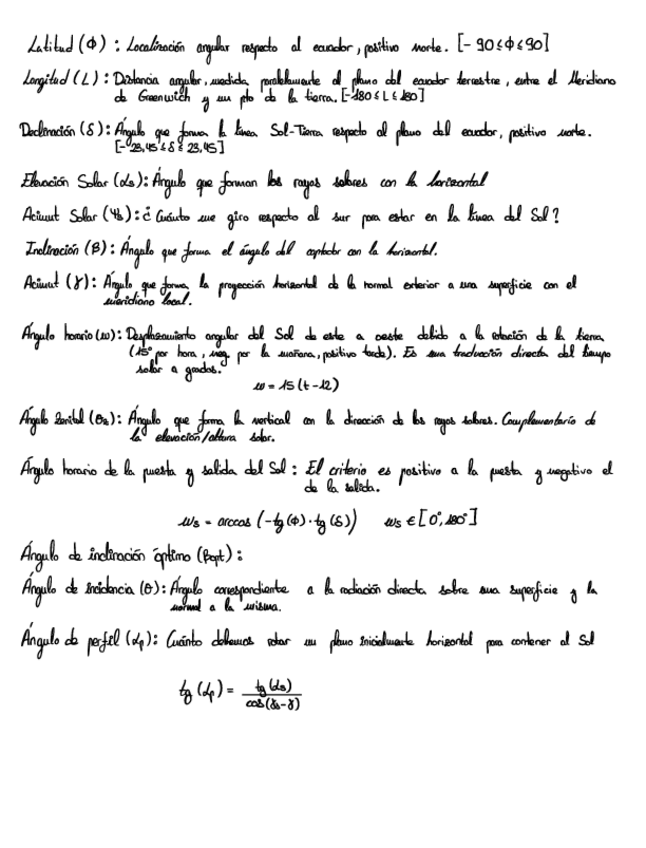 Latitud (Φ) : Localización angular respecto al ecuador, positivo norte. [- 90 ≤ Φ ≤ 90]
Longitud (L) : Distancia angular, medida paralelamente al plano del ecuador terrestre, entre el Meridiano
de Greenwich y un pto de la tierra. [-180 ≤ L ≤ 180]
Declinación (δ) : Ángulo que forma la línea Sol-Tierra respecto al plano del ecuador, positivo norte.
[-23,45 ≤ δ ≤ 23,45]
Elevación Solar (αs) : Ángulo que forman los rayos solares con la horizontal
Acimut Solar (Ψs) : ¿ Cuánto me giro respecto al sur para estar en la línea del Sol ?
Inclinación (β) : Ángulo que forma el ángulo del captador con la horizontal.
Acimut (γ) : Ángulo que forma, la proyección horizontal de la normal exterior a una superficie con el
meridiano local.
Ángulo horario (ω) : Desplazamiento angular del Sol de este a oeste debido a la rotación de la tierra
(15° por hora, neg. por la mañana, positivo tarde). Es una traducción directa del tiempo
solar a grados.
ω = 15 (t - 12)
Ángulo Zenital (θz) : Ángulo que forma la vertical con la dirección de los rayos solares. Complementario de
la elevación/altura solar.
Ángulo horario de la puesta y salida del Sol : El criterio es positivo a la puesta y negativo el
de la salida.
ωs = arccos (-tg (Φ) · tg (δ)) ωs ∈ [0°, 180°]
Ángulo de inclinación óptimo (βopt) :
Ángulo de incidencia (θ) : Ángulo correspondiente a la radiación directa sobre una superficie y la
normal a la misma.
Ángulo de perfil (αp) : Cuánto debemos rotar un plano inicialmente horizontal para contener al Sol
tg (αp) = tg (αs) / cos (γs - γ)